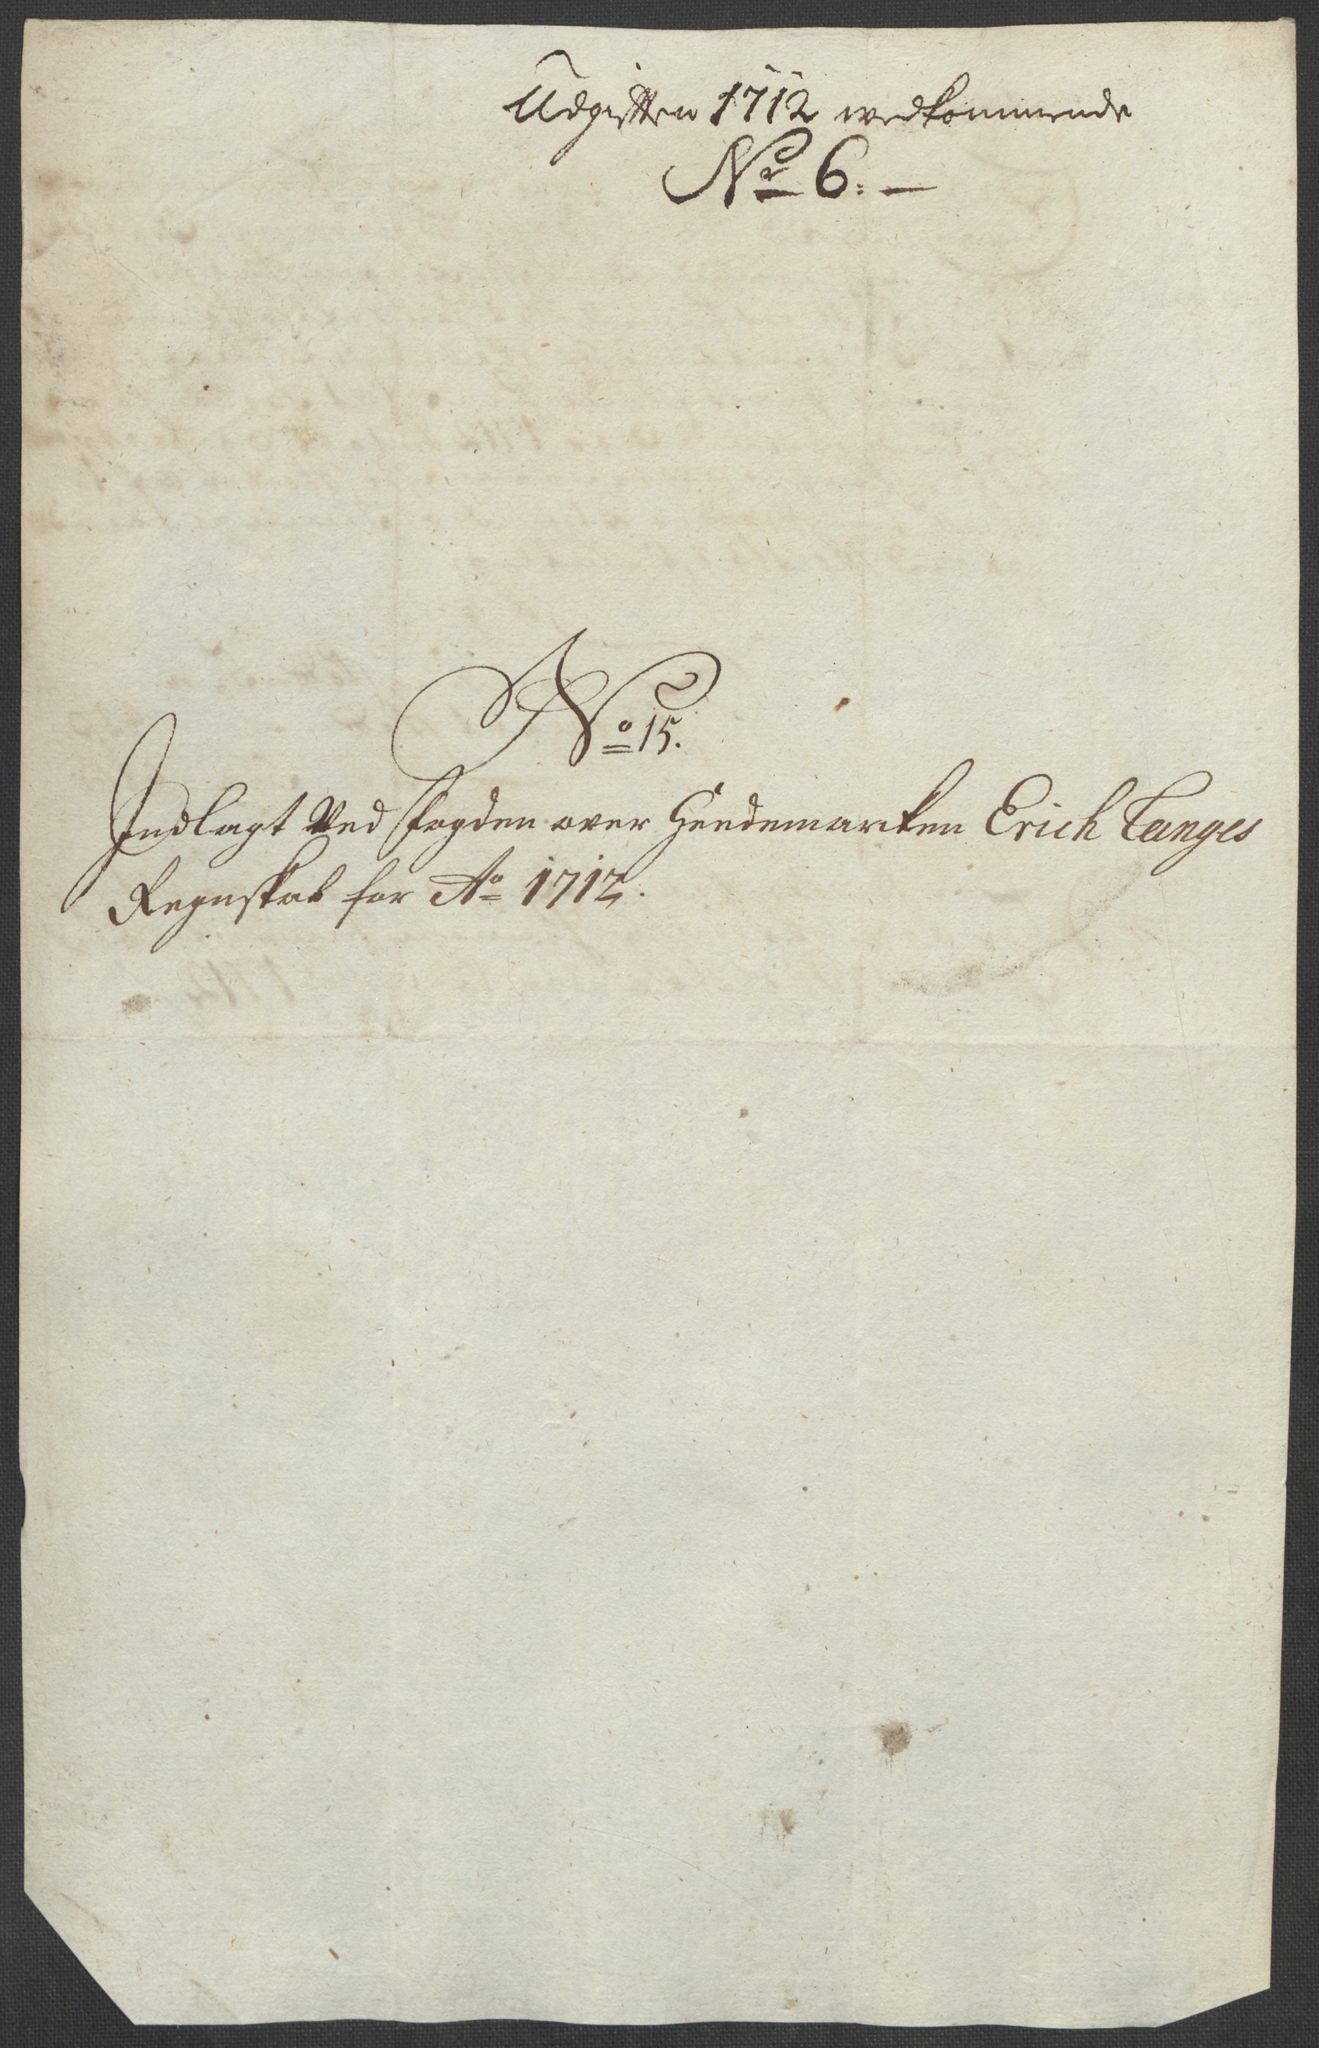 Udgifften 1712 wedkommende
Nr 6. —
No 15.
Indlagt Ved fogden over Heedemarcken Erich Tanges
Regnskab for Ao 1712.